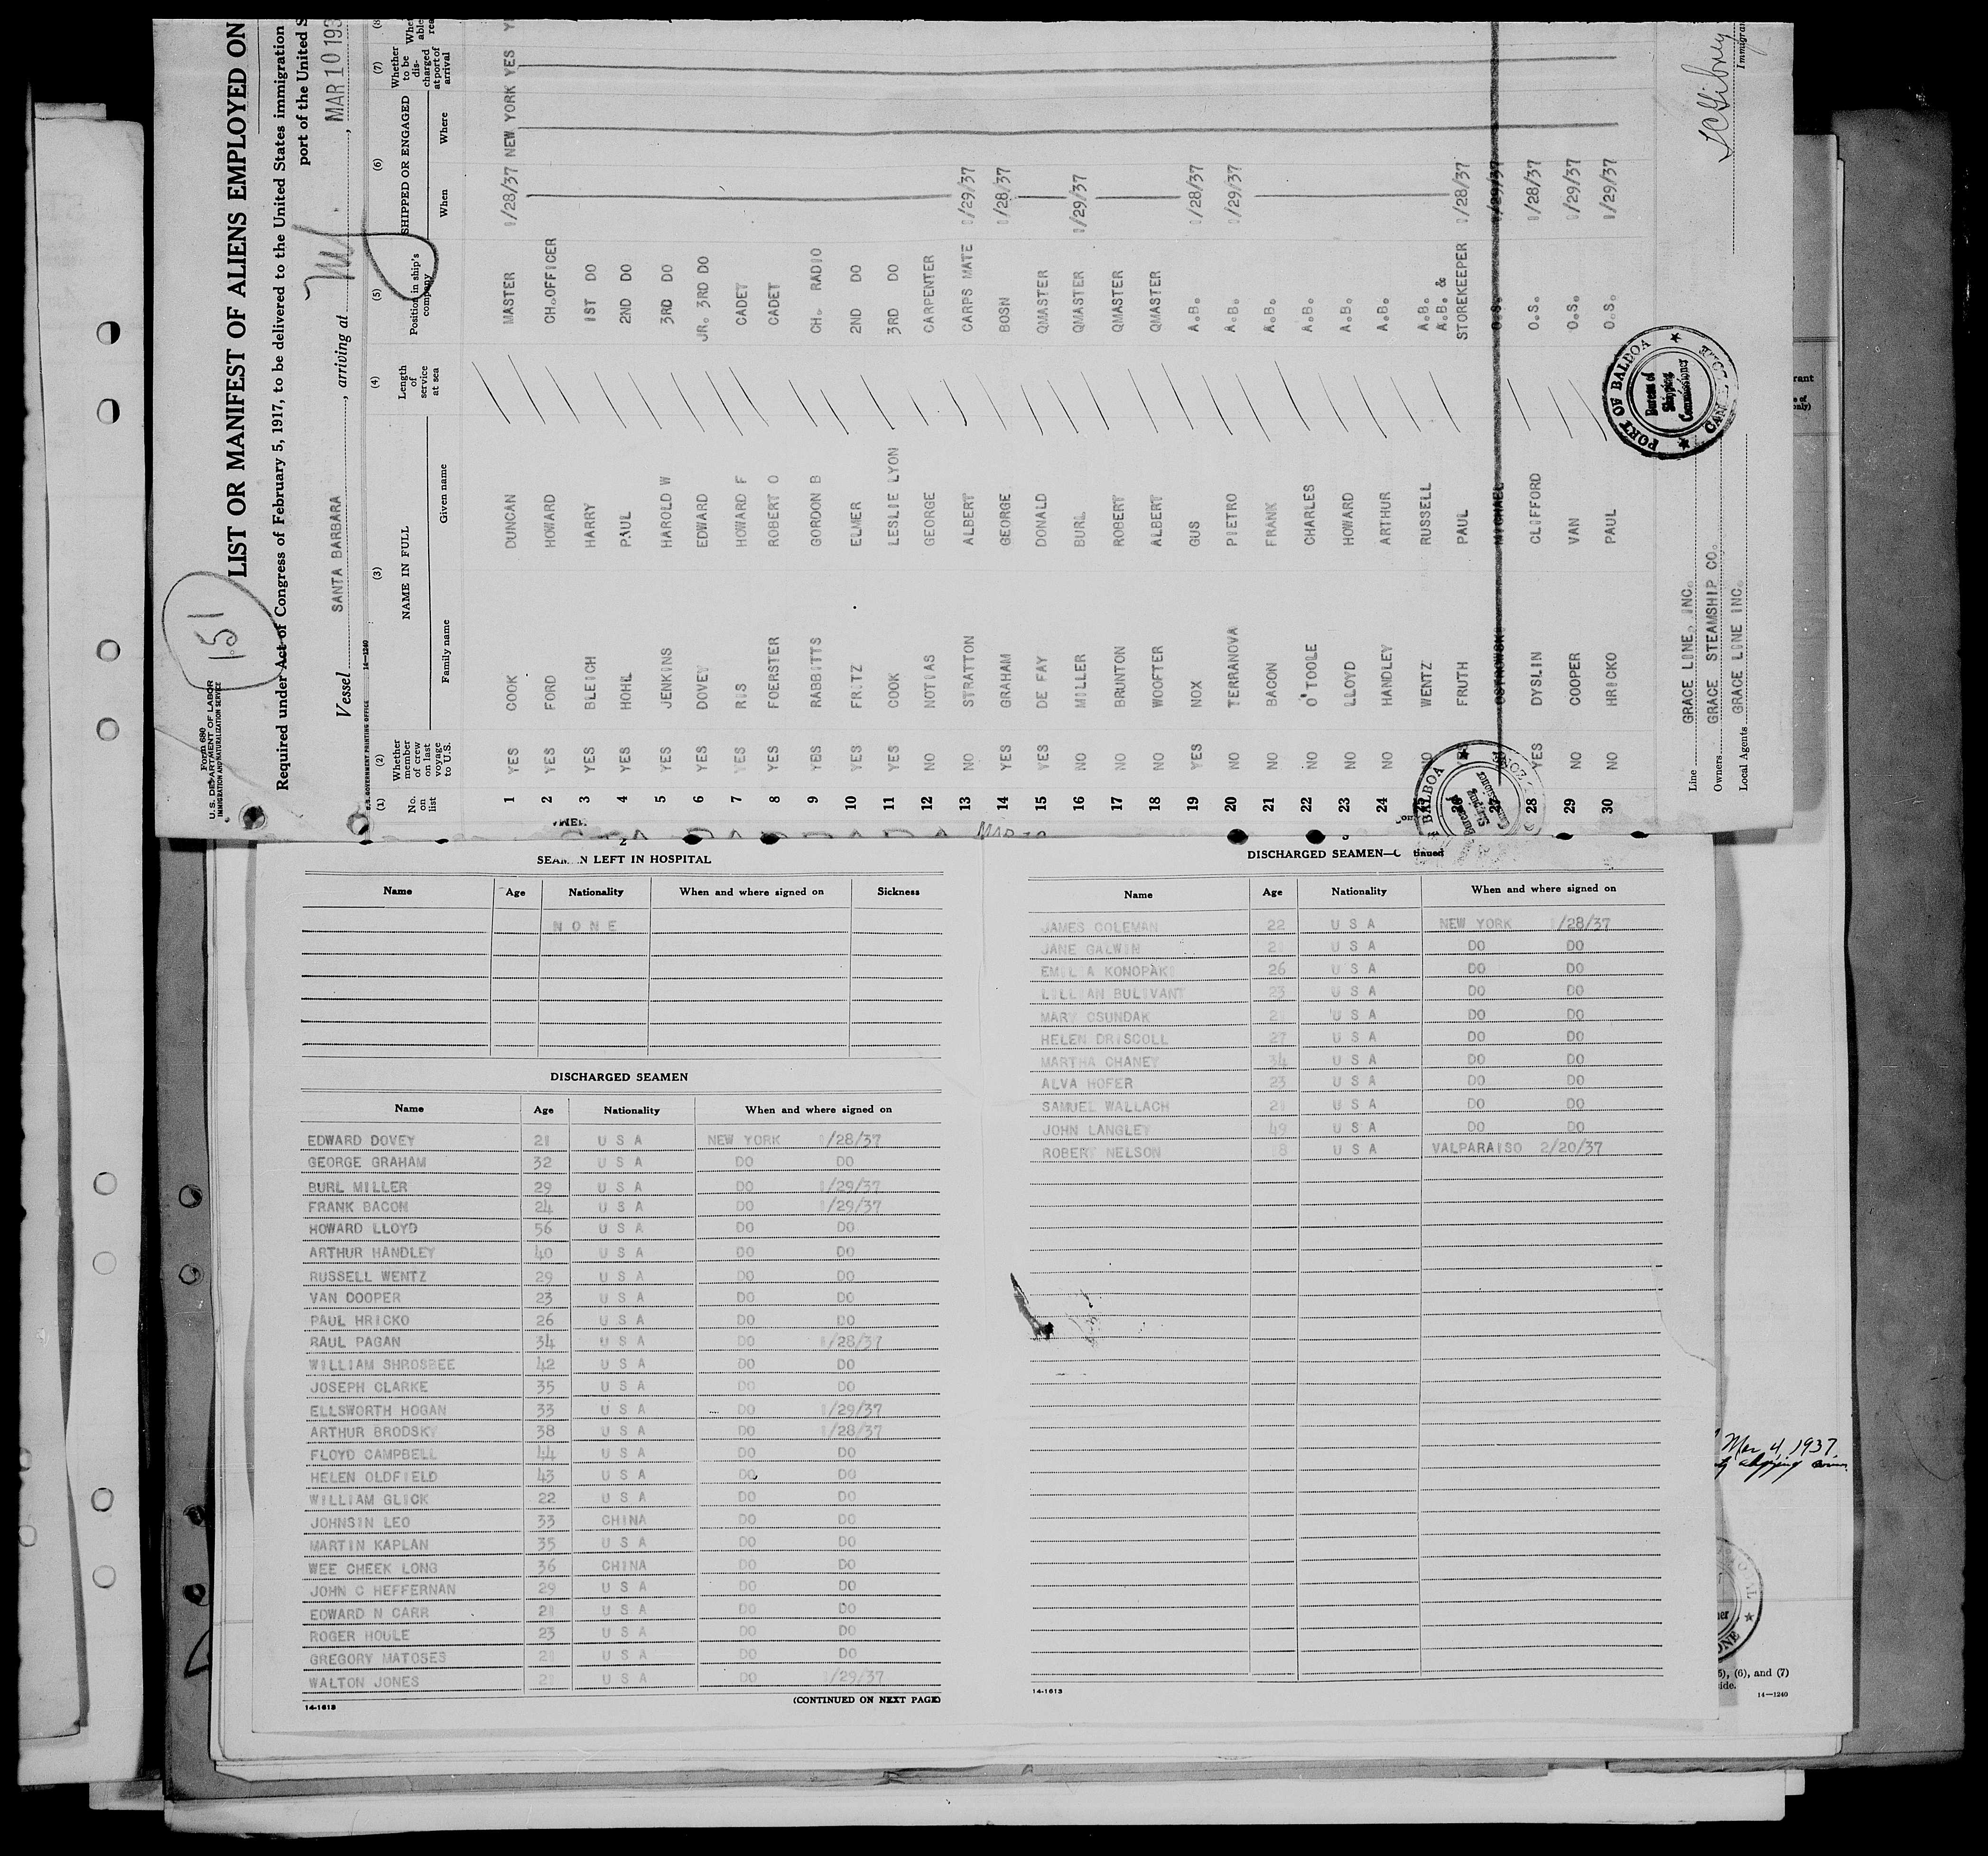 Form 680
U.S. DEPARTMENT OF LABOR
IMMIGRATION AND NATURALIZATION SERVICE
151
LIST OR MANIFEST OF ALIENS EMPLOYED ON
Required under Act of Congress of February 5, 1917, to be delivered to the United States immigration
port of the United S
Vessel SANTA BARBARA, arriving at , MAR 10 193
U.S. GOVERNMENT PRINTING OFFICE 14—1240
(1) (2) (3) (4) (5) (6) (7) (8)
No. on list
Whether member of crew on last voyage to U.S.
NAME IN FULL
Family name Given name
Length of service at sea
Position in ship's company
SHIPPED OR ENGAGED
When Where
Whether to be discharged at port of arrival
1 YES COOK DUNCAN MASTER 1/28/37 NEW YORK YES
2 YES FORD HOWARD CH.OFFICER
3 YES BLEICH HARRY 1ST DO
4 YES HOHL PAUL 2ND DO
5 YES JENKINS HAROLD W 3RD DO
6 YES DOVEY EDWARD JR. 3RD DO
7 YES RIS HOWARD F CADET
8 YES FOERSTER ROBERT O CADET
9 YES RABBITTS GORDON B CH. RADIO
10 YES FRITZ ELMER 2ND DO
11 YES COOK LESLIE LYON 3RD DO
12 NO NOTIAS GEORGE CARPENTER
13 NO STRATTON ALBERT CARPS MATE 1/29/37
14 YES GRAHAM GEORGE BOSN 1/28/37
15 YES DE FAY DONALD QMASTER
16 NO MILLER BURL QMASTER 1/29/37
17 NO BRUNTON ROBERT QMASTER
18 NO WOOFTER ALBERT QMASTER
19 YES NOX GUS A.B. 1/28/37
20 NO TERRANOVA PIETRO A.B. 1/29/37
21 NO BACON FRANK A.B.
22 NO O'TOOLE CHARLES A.B.
23 NO LLOYD HOWARD A.B.
24 NO HANDLEY ARTHUR A.B.
25 NO WENTZ RUSSELL A.B.
26 YES FRUTH PAUL A.B. & STOREKEEPER 1/28/37
27 MICHAEL O.S. 1/29/37
28 YES DYSLIN CLIFFORD O.S. 1/28/37
29 NO COOPER VAN O.S. 1/29/37
30 NO HRICKO PAUL O.S. 1/29/37
Line GRACE LINE, INC.
Owners GRACE STEAMSHIP CO.
Local Agents GRACE LINE INC.
PORT OF BALBOA
Bureau of Shipping Commissioner
BALBOA
SEAMEN LEFT IN HOSPITAL
Name Age Nationality When and where signed on Sickness
NONE
DISCHARGED SEAMEN
Name Age Nationality When and where signed on
EDWARD DOVEY 21 U S A NEW YORK 1/28/37
GEORGE GRAHAM 32 U S A DO DO
BURL MILLER 29 U S A DO 1/29/37
FRANK BACON 24 U S A DO 1/29/37
HOWARD LLOYD 56 U S A DO DO
ARTHUR HANDLEY 40 U S A DO DO
RUSSELL WENTZ 29 U S A DO DO
VAN DOOPER 23 U S A DO DO
PAUL HRICKO 26 U S A DO DO
RAUL PAGAN 34 U S A DO 1/28/37
WILLIAM SHROSBEE 42 U S A DO DO
JOSEPH CLARKE 35 U S A DO DO
ELLSWORTH HOGAN 33 U S A DO 1/29/37
ARTHUR BRODSKY 38 U S A DO 1/28/37
FLOYD CAMPBELL 44 U S A DO DO
HELEN OLDFIELD 43 U S A DO DO
WILLIAM GLICK 22 U S A DO DO
JOHNSIN LEO 33 CHINA DO DO
MARTIN KAPLAN 35 U S A DO DO
WEE CHEEK LONG 36 CHINA DO DO
JOHN C HEFFERNAN 29 U S A DO DO
EDWARD N CARR 21 U S A DO DO
ROGER HOULE 23 U S A DO DO
GREGORY MATOSES 21 U S A DO DO
WALTON JONES 21 U S A DO 1/29/37
14-1613 (CONTINUED ON NEXT PAGE)
DISCHARGED SEAMEN—Continued
Name Age Nationality When and where signed on
JAMES COLEMAN 22 U S A NEW YORK 1/28/37
JANE GALWIN 21 U S A DO DO
EMILIA KONOPAKI 26 U S A DO DO
LILLIAN BULIVANT 23 U S A DO DO
MARY OSUNDAK 21 U S A DO DO
HELEN DRISCOLL 27 U S A DO DO
MARTHA CHANEY 34 U S A DO DO
ALVA HOFER 23 U S A DO DO
SAMUEL WALLACH 21 U S A DO DO
JOHN LANGLEY 49 U S A DO DO
ROBERT NELSON 18 U S A VALPARAISO 2/20/37
14-1613
Mar 4, 1937
(6), and (7)
side.
14—1240